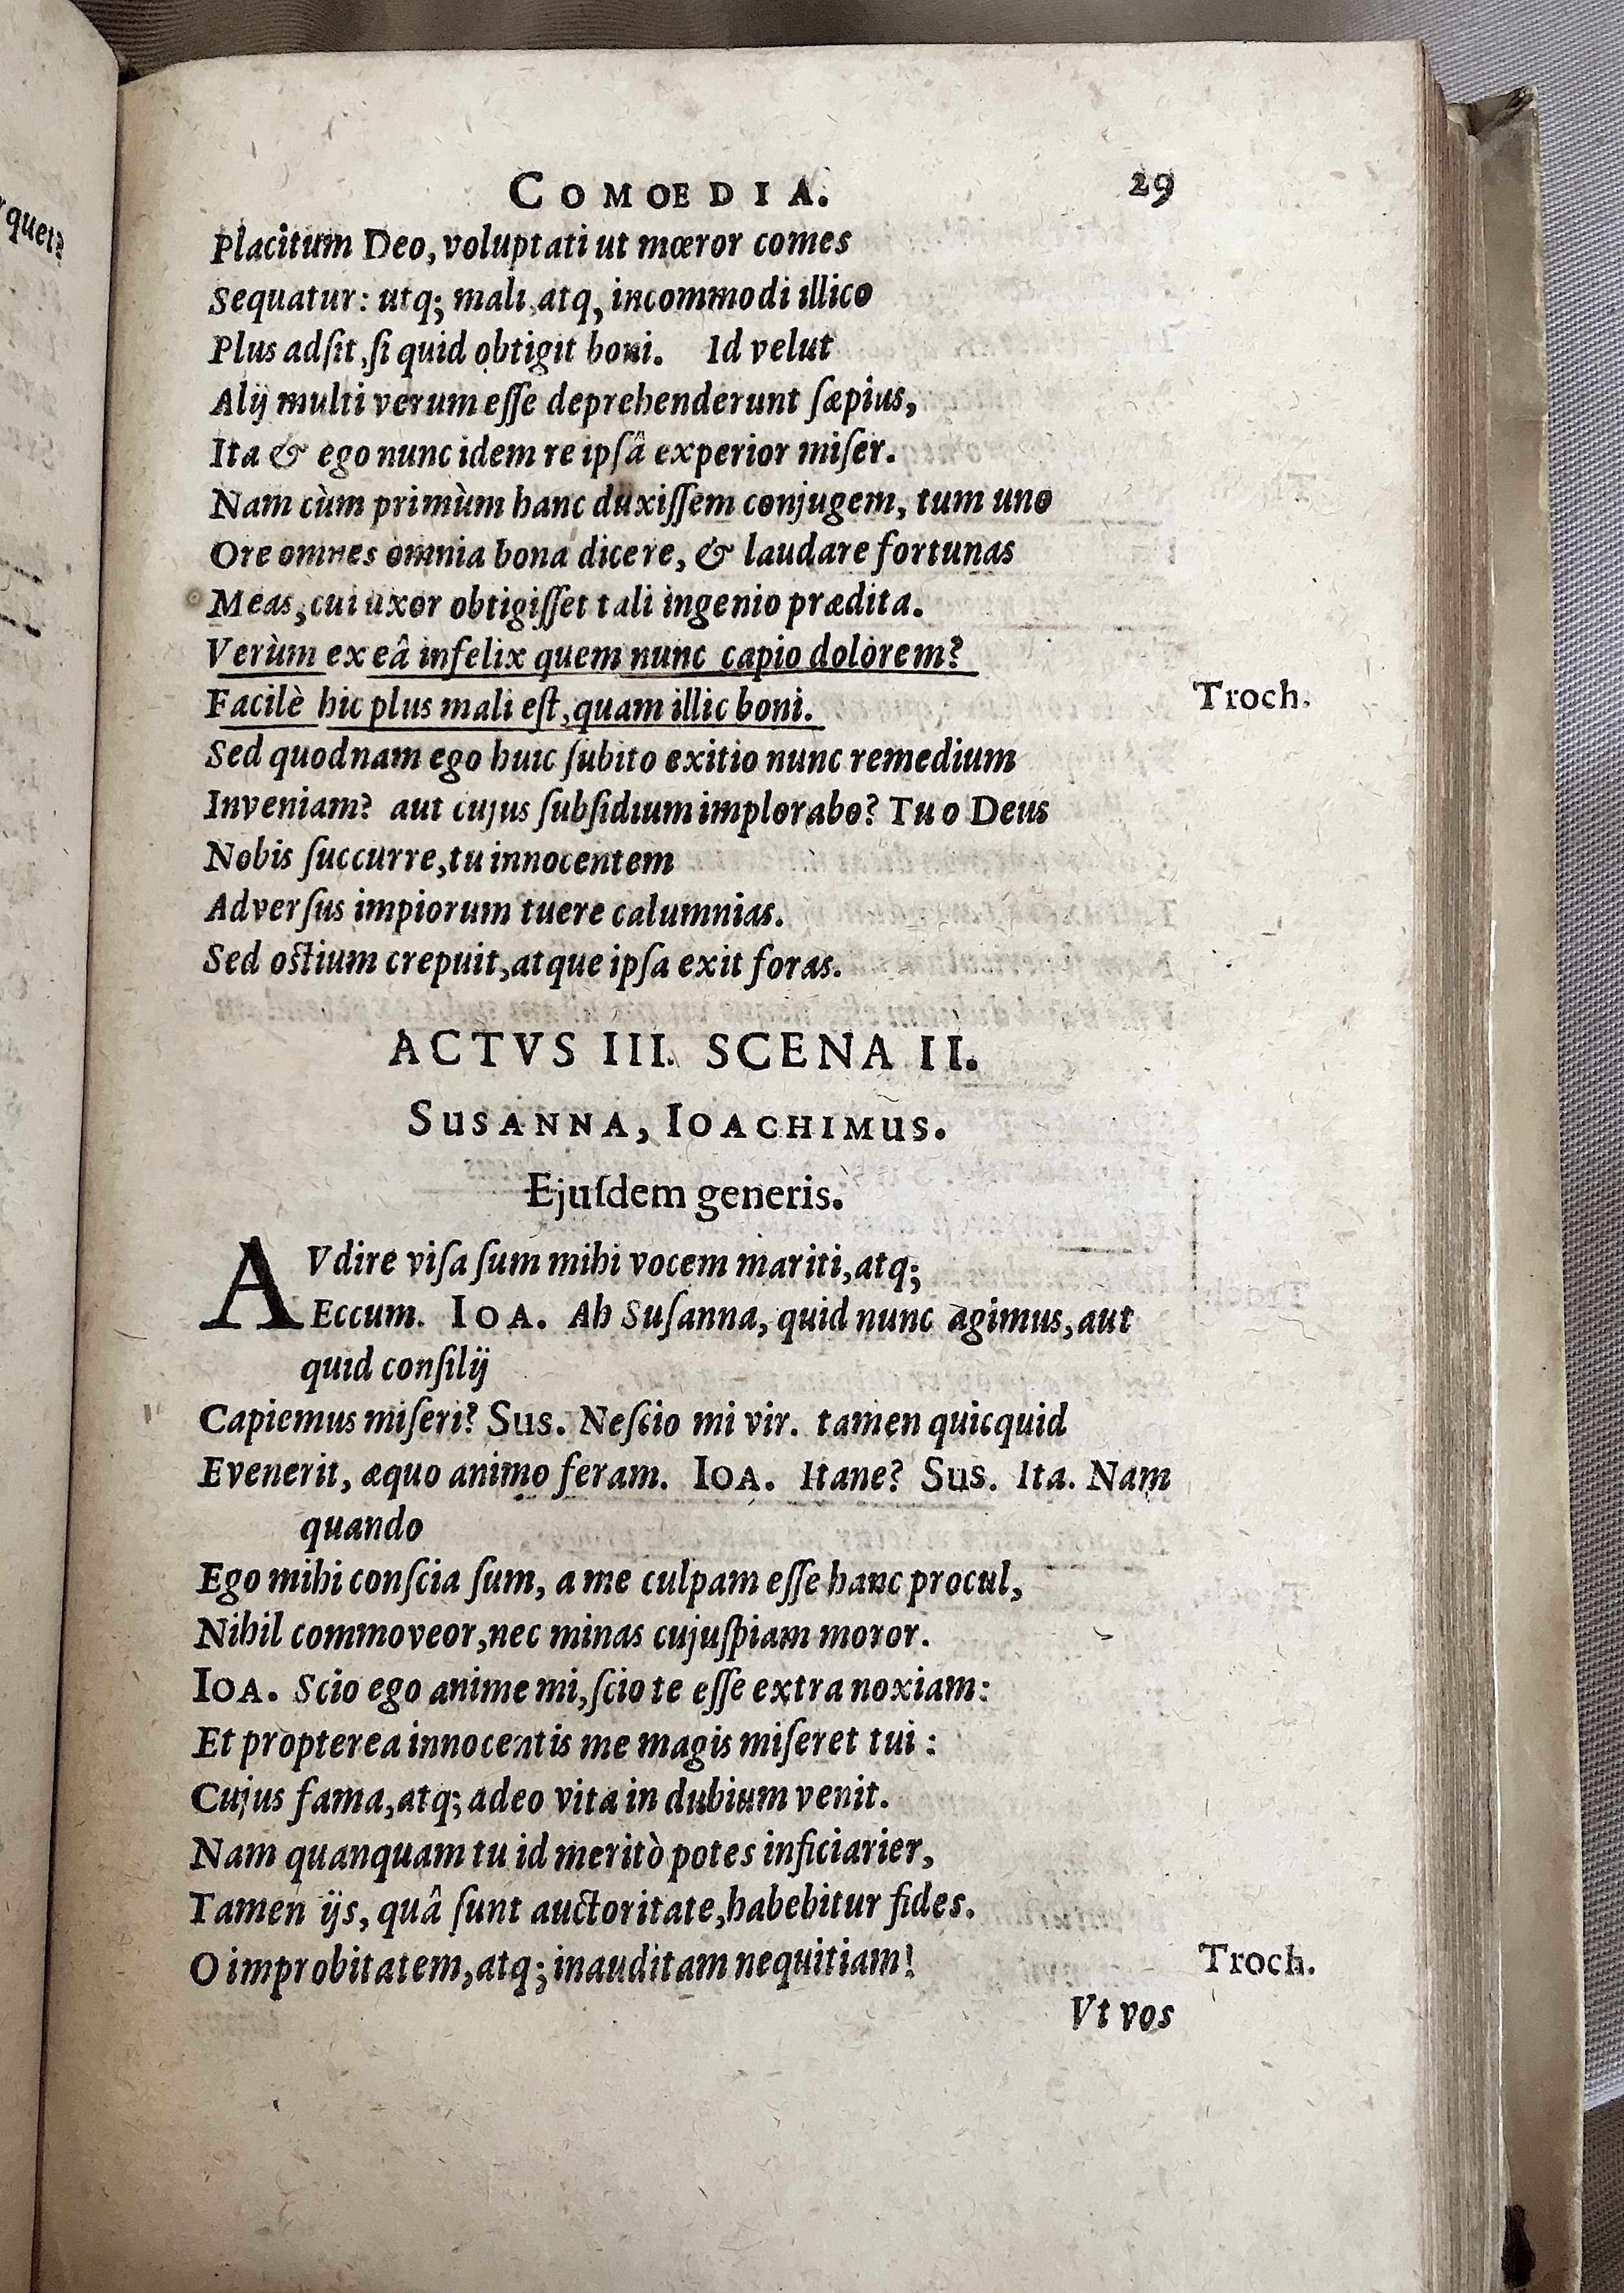 quet?
COMOEDIA. 29
Placitum Deo, voluptati ut mœror comes
Sequatur: utq; mali atq, incommodi illico
Plus adſit, ſi quid obtigit boni. Id velut
Alij multi verum eſſe deprehenderunt ſæpius,
Ita & ego nunc idem re ipſâ experior miſer.
Nam cùm primùm hanc duxiſſem conjugem, tum uno
Ore omnes omnia bona dicere, & laudare fortunas
Meas, cui uxor obtigiſſet tali ingenio prædita.
Verùm ex eâ infelix quem nunc capio dolorem?
Facilè hic plus mali eſt, quam illic boni. Troch.
Sed quodnam ego huic ſubito exitio nunc remedium
Inveniam? aut cujus ſubſidium implorabo? Tu o Deus
Nobis ſuccurre, tu innocentem
Adverſus impiorum tuere calumnias.
Sed oſtium crepuit, atque ipſa exit foras.
ACTVS III. SCENA II.
SusANNA, IOACHIMus.
Ejuſdem generis.
AVdire viſa ſum mihi vocem mariti, atq;
Eccum. IOA. Ah Suſanna, quid nunc agimus, aut
quid conſilij
Capiemus miſeri? Sus. Neſcio mi vir. tamen quicquid
Evenerit, æquo animo feram. IOA. Itane? Sus. Ita. Nam
quando
Ego mihi conſcia ſum, a me culpam eſſe hanc procul,
Nihil commoveor, nec minas cujuſpiam moror.
IOA. Scio ego anime mi, ſcio te eſſe extra noxiam:
Et propterea innocentis me magis miſeret tui:
Cujus fama, atq; adeo vita in dubium venit.
Nam quanquam tu id meritò potes inficiarier,
Tamen ijs, quâ ſunt auctoritate, habebitur fides.
O improbitatem, atq; inauditam nequitiam! Troch.
Vt vos